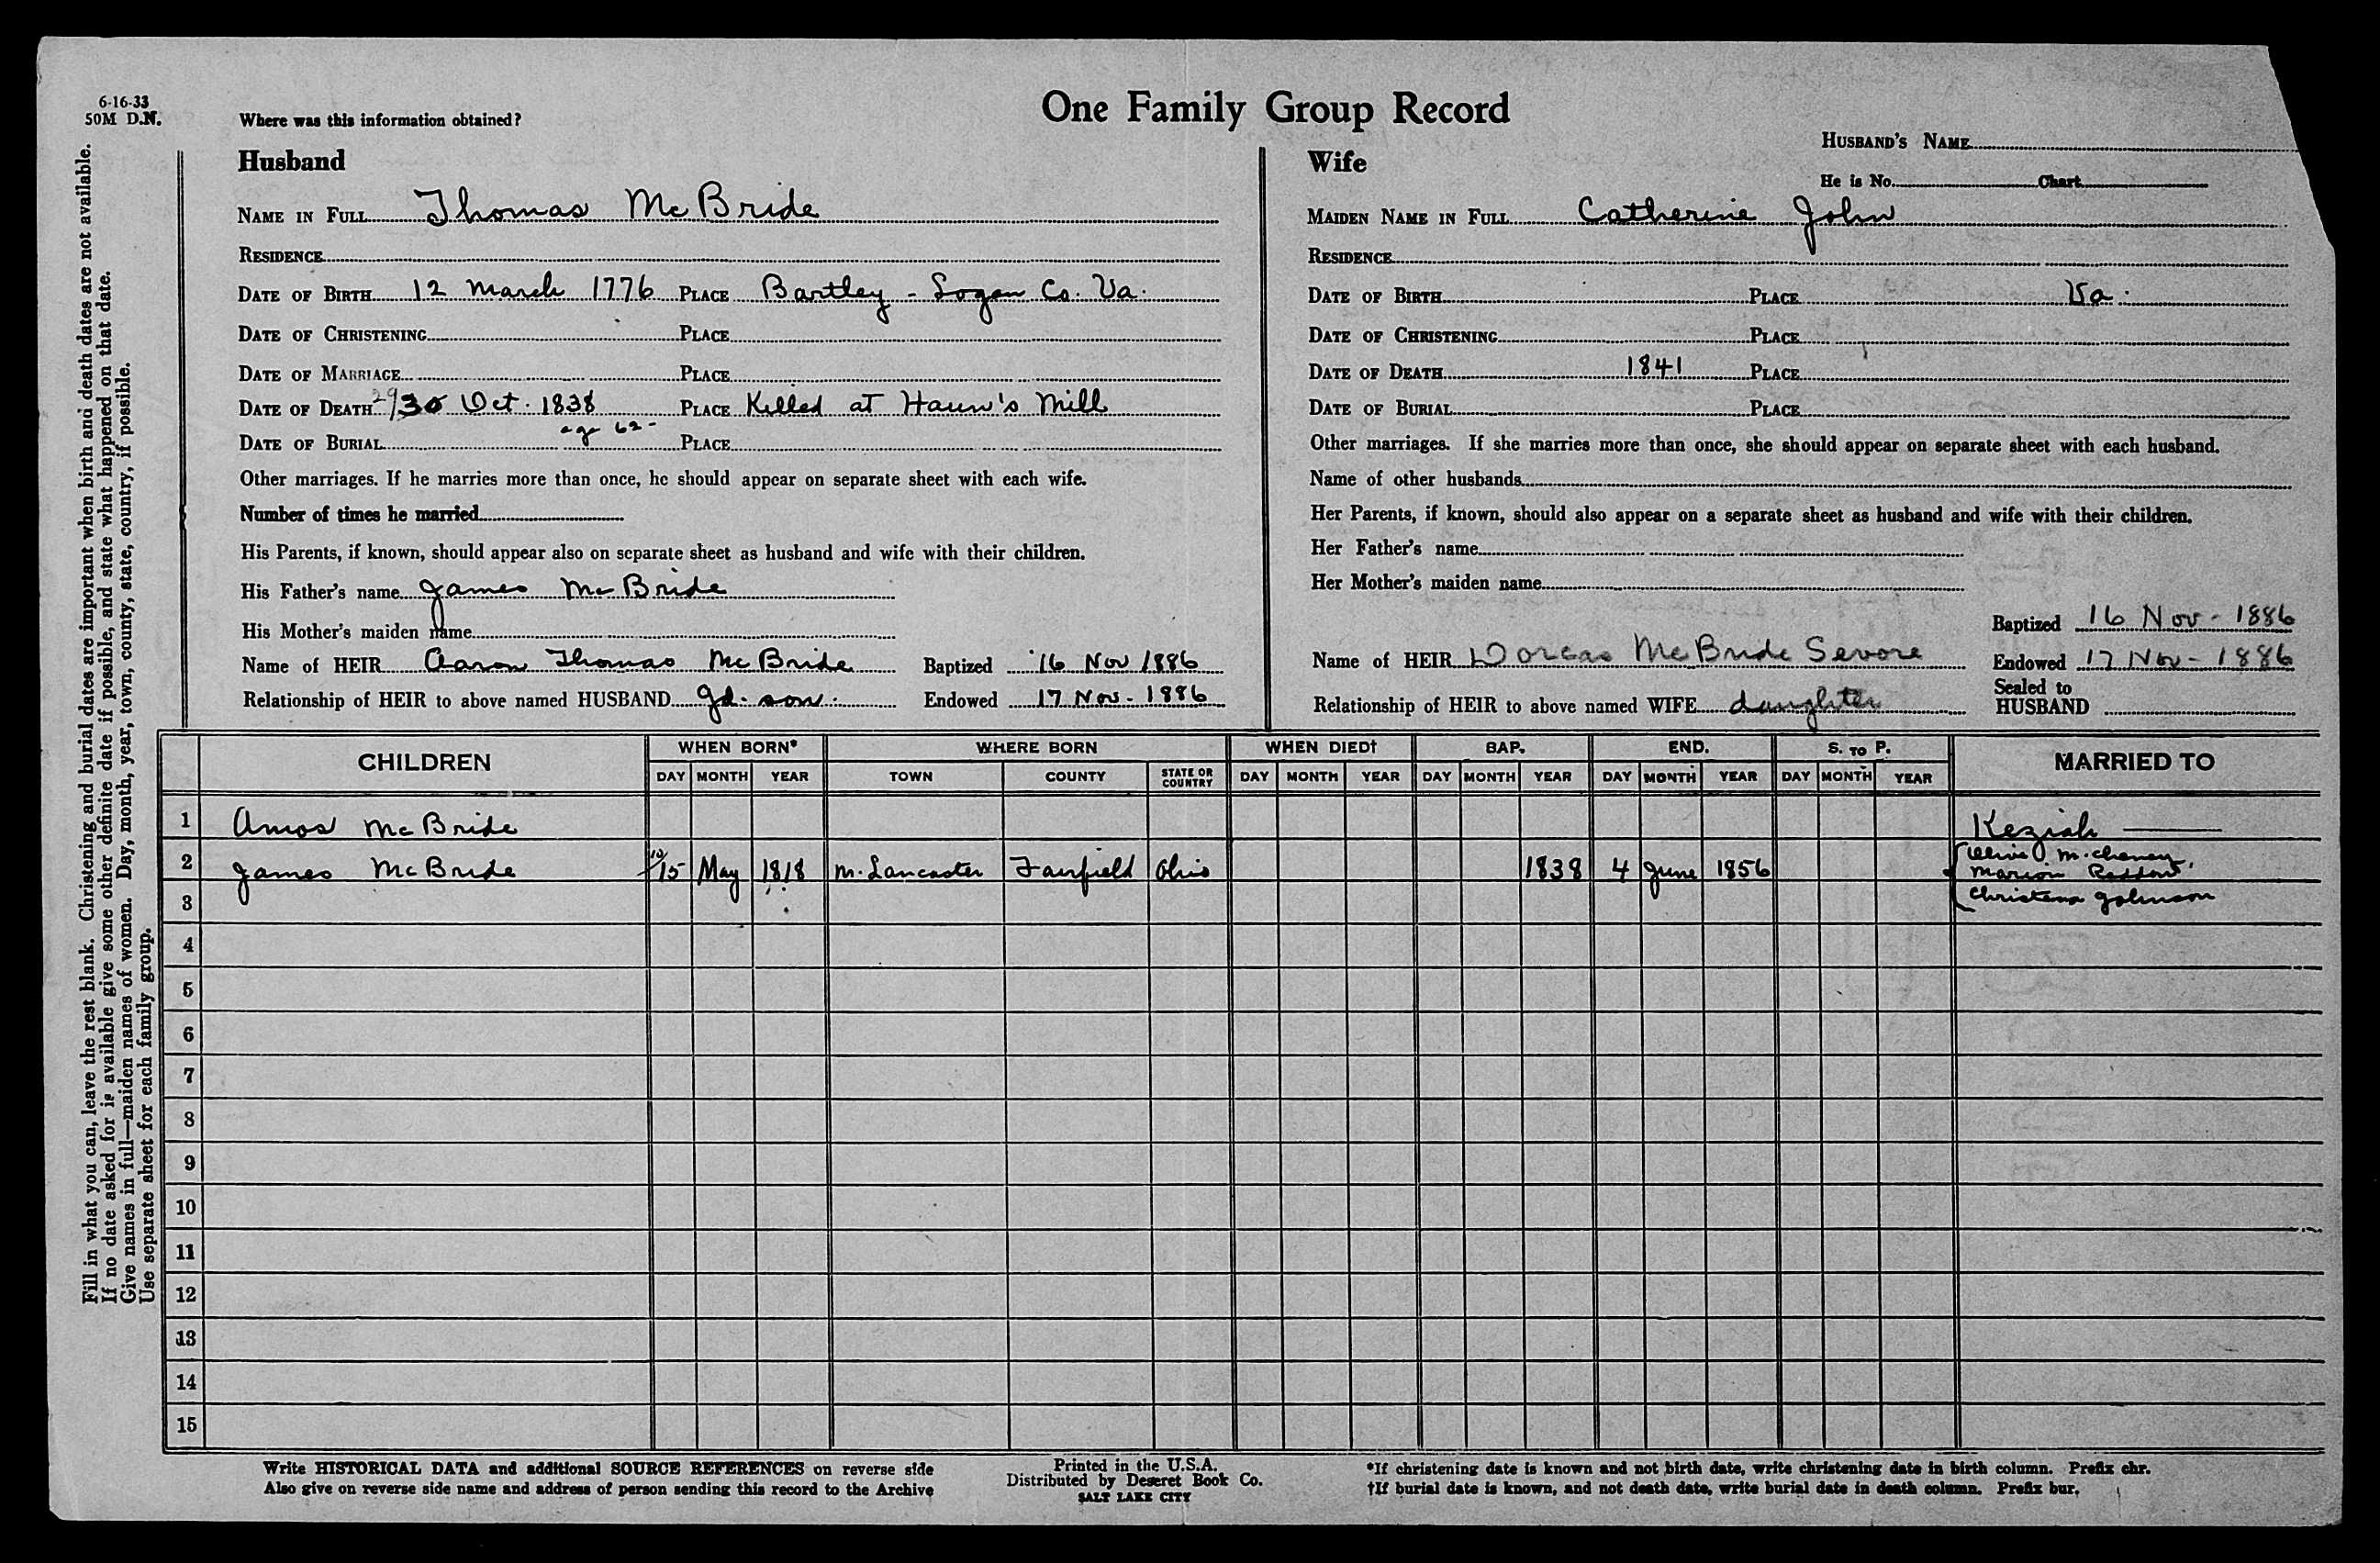 6-16-33
50M D.N.
Where was this information obtained?
One Family Group Record
HUSBAND'S NAME
He is No. Chart
Husband
NAME IN FULL Thomas McBride
RESIDENCE
DATE OF BIRTH 12 March 1776 PLACE Bartley - Logan Co. Va.
DATE OF CHRISTENING PLACE
DATE OF MARRIAGE PLACE
DATE OF DEATH 29/30 Oct. 1838 PLACE Killed at Haun's Mill
age 62-
DATE OF BURIAL PLACE
Other marriages. If he marries more than once, he should appear on separate sheet with each wife.
Number of times he married
His Parents, if known, should appear also on separate sheet as husband and wife with their children.
His Father's name James McBride
His Mother's maiden name
Name of HEIR Aaron Thomas McBride Baptized 16 Nov 1886
Relationship of HEIR to above named HUSBAND gd. son. Endowed 17 Nov - 1886
Wife
MAIDEN NAME IN FULL Catherine John
RESIDENCE
DATE OF BIRTH PLACE Va.
DATE OF CHRISTENING PLACE
DATE OF DEATH 1841 PLACE
DATE OF BURIAL PLACE
Other marriages. If she marries more than once, she should appear on separate sheet with each husband.
Name of other husbands
Her Parents, if known, should also appear on a separate sheet as husband and wife with their children.
Her Father's name
Her Mother's maiden name
Baptized 16 Nov - 1886
Name of HEIR Dorcas McBride Sevore Endowed 17 Nov - 1886
Relationship of HEIR to above named WIFE daughter Sealed to HUSBAND
CHILDREN WHEN BORN* WHERE BORN WHEN DIED† BAP. END. S. TO P. MARRIED TO
DAY MONTH YEAR TOWN COUNTY STATE OR COUNTRY DAY MONTH YEAR DAY MONTH YEAR DAY MONTH YEAR DAY MONTH YEAR
1 Amos McBride Keziah ———
2 James McBride 10/15 May 1818 m. Lancaster Fairfield Ohio 1838 4 June 1856 Olive M. Cheney,
Marion
3 Christena Johnson
4
5
6
7
8
9
10
11
12
13
14
15
Write HISTORICAL DATA and additional SOURCE REFERENCES on reverse side
Also give on reverse side name and address of person sending this record to the Archive
Printed in the U.S.A.
Distributed by Deseret Book Co.
SALT LAKE CITY
*If christening date is known and not birth date, write christening date in birth column. Prefix chr.
†If burial date is known, and not death date, write burial date in death column. Prefix bur.
Fill in what you can, leave the rest blank. Christening and burial dates are important when birth and death dates are not available.
If no date asked for is available give some other definite date if possible, and state what happened on that date.
Give names in full—maiden names of women. Day, month, year, town, county, state, country, if possible.
Use separate sheet for each family group.